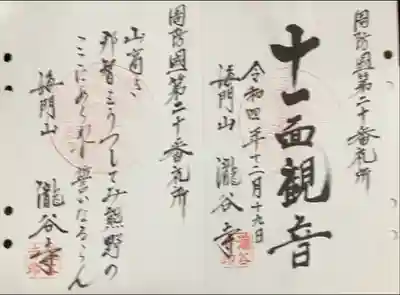 周防國第二十番札所
十一面観音
令和四年十二月十九日
海門山 瀧谷寺
周防國第二十番札所
山高き
那智をうつしてみ熊野の
ここにめぐ
誓いなるらん
海門山 瀧谷寺